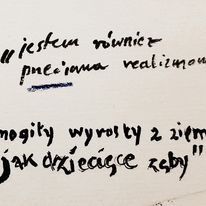 "jestem również
przeciwna realizmowi
mogiły wyrosły z ziemi
jak dziecięce zęby"